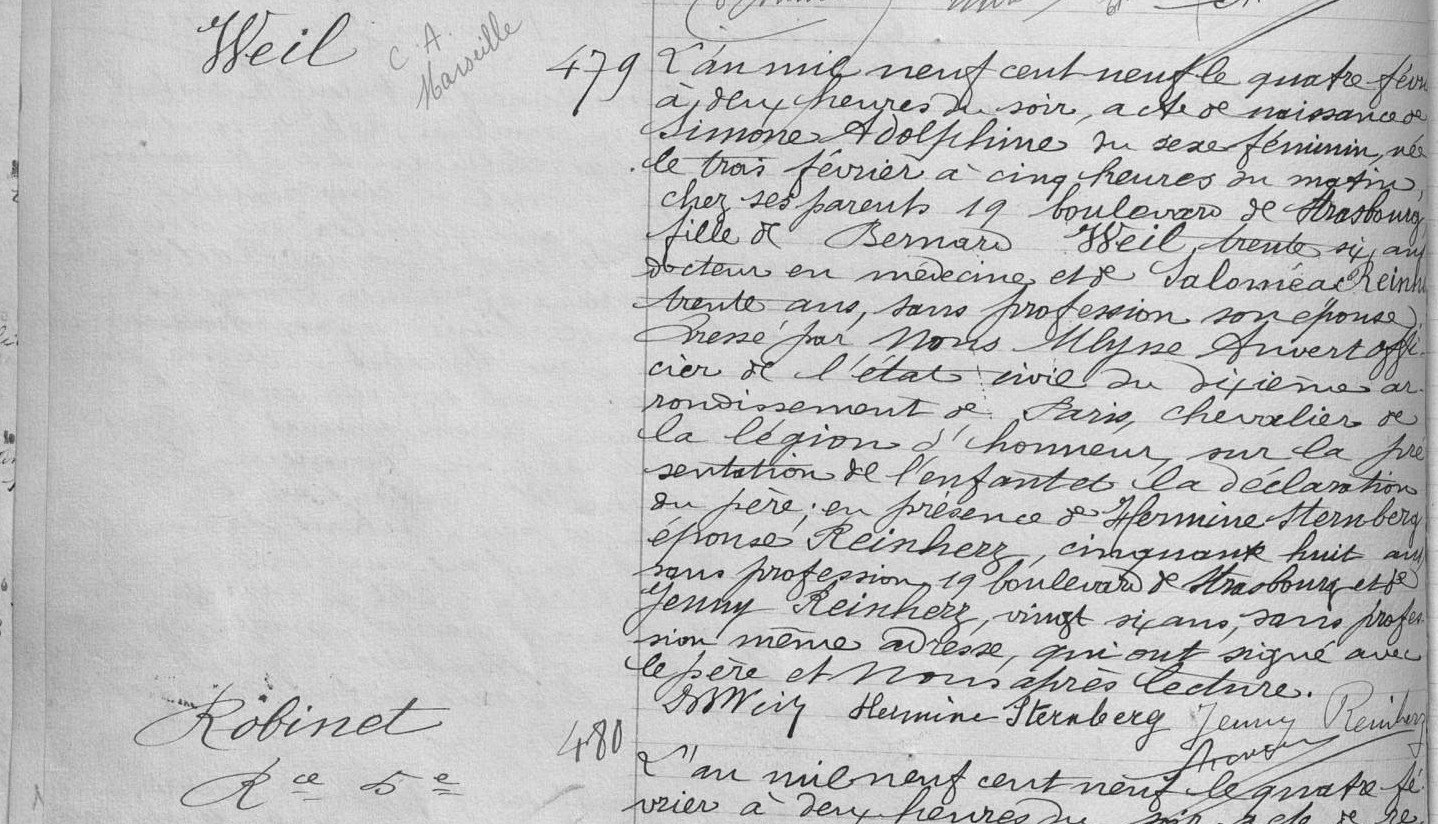 Weil
C. A.
Marseille
479
L'an mil neuf cent neuf le quatre févr
à deux heures du soir, acte de naissance de
Simone Adolphine du sexe féminin, née
le trois février à cinq heures du matin,
chez ses parents 19 boulevard de Strasbourg,
fille de Bernard Weil, trente six ans
docteur en médecine et de Saloméa Reinh
trente ans, sans profession son épouse.
Dressé par Nous Ulysse Auvert offi-
cier de l'état civil du dixième ar-
rondissement de Paris, chevalier de
la légion d'honneur, sur la pré
sentation de l'enfant et la déclaration
du père; en présence de Hermine Sternberg
épouse Reinherz, cinquante huit ans
sans profession, 19 boulevard de Strasbourg et de
Jenny Reinherz, vingt six ans, sans profes-
sion même adresse, qui ont signé avec
le père et Nous après lecture.
Hermine Sternberg Jenny Reinherz
Robinet
Rce 5e
480
L'an mil neuf cent neuf le quatre fé-
vrier à deux heures du soir acte de